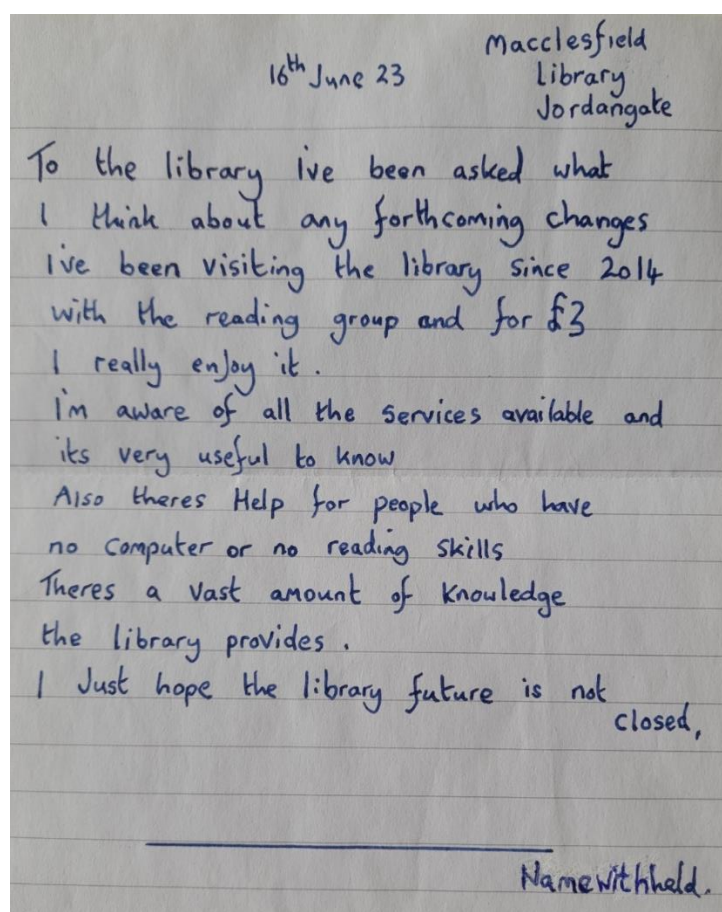 Macclesfield
16th June 23 Library
Jordangate
To the library ive been asked what
I think about any forthcoming changes
I've been visiting the library since 2014
with the reading group and for £3
I really enjoy it.
I'm aware of all the services available and
its very useful to know
Also theres Help for people who have
no computer or no reading skills
Theres a vast amount of knowledge
the library provides.
I Just hope the library future is not
closed,
Name withheld.